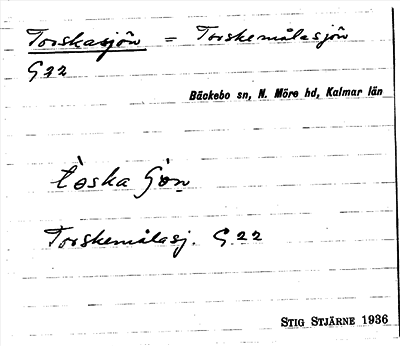 Torskasjön = Torskemålasjön
G22
Bäckebo sn, N. Möre hd, Kalmar län
tòska ʃön
Torskemålasj. G 22
STIG STJÄRNE 1936